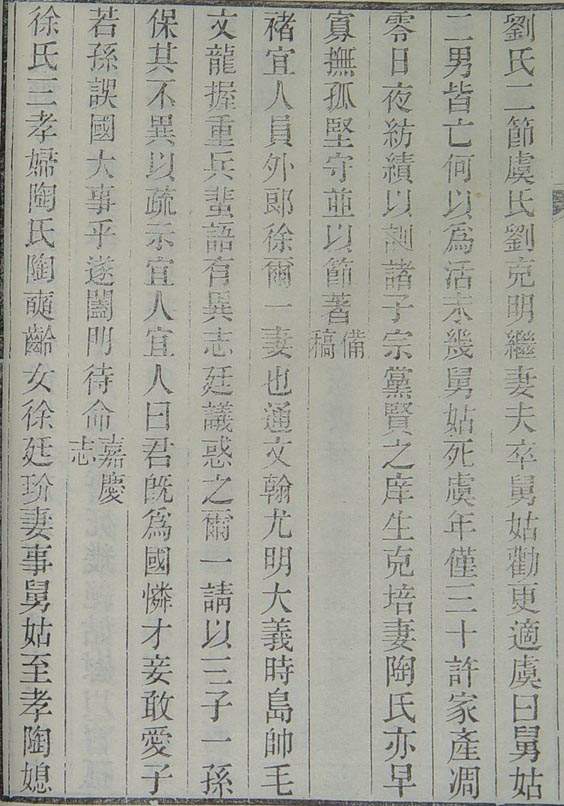 劉氏二節虞氏劉克明繼妻夫卒舅姑勸更適虞曰舅姑
二男皆亡何以爲活未幾舅姑死虞年僅三十許家產凋
零日夜紡績以訓諸子宗黨賢之庠生克培妻陶氏亦早
寡撫孤堅守並以節著備稿
褚宜人員外郎徐爾一妻也通文翰尤明大義時島帥毛
文龍握重兵蜚語有異志廷議惑之爾一請以三子一孫
保其不異以疏示宜人宜人曰君旣爲國憐才妾敢愛子
若孫誤國大事乎遂闔門待命嘉慶志
徐氏三孝婦陶氏陶奭齡女徐廷玠妻事舅姑至孝陶媳